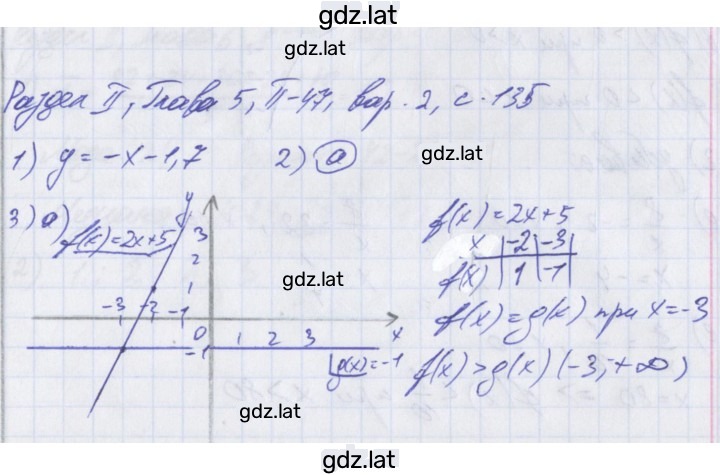 gdz.lat
gdz.lat
Раздел II, Глава 5, П-47, вар. 2, с. 135
1) y = -x - 1,7    2) а
gdz.lat
3) а) f(x) = 2x+5
y
3
2
1
-3 -2 -1
0 1 2 3 x
-1
g(x) = -1
gdz.lat
f(x) = 2x+5
x | -2 | -3 |
f(x) | 1 | -1 |
f(x) = g(x) при x = -3
f(x) > g(x) (-3; +∞)
gdz.lat
gdz.lat